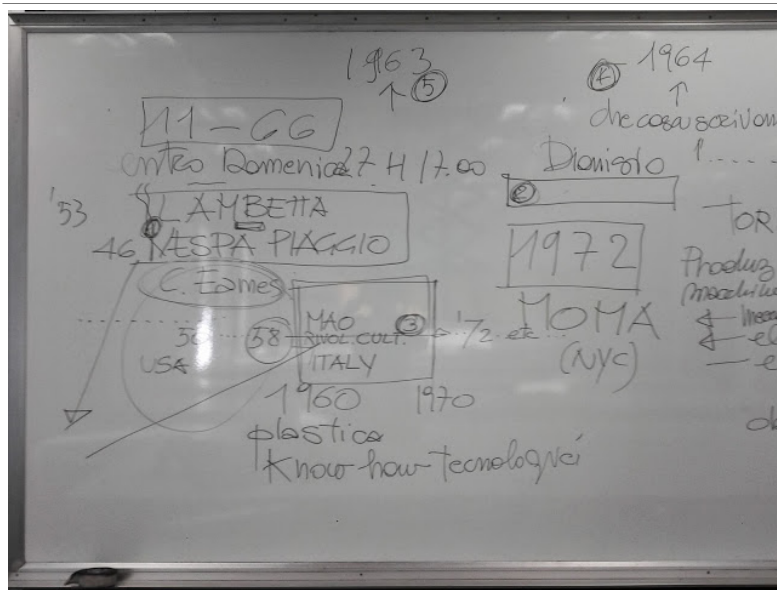 1963
↑ ⑤
④ 1964
↑
che cosa scrivon
11-66
entro Domenica 27 H 17.00
Dionisio
②
'53
① LAMBETTA
46 VESPA PIAGGIO
C. Eames
1972
MOMA
(NYC)
TOR
Produz
58
USA
MAO ③
RIVOL. CULT.
ITALY
1/2 etc
1960 1970
plastica
Know-how-tecnologici